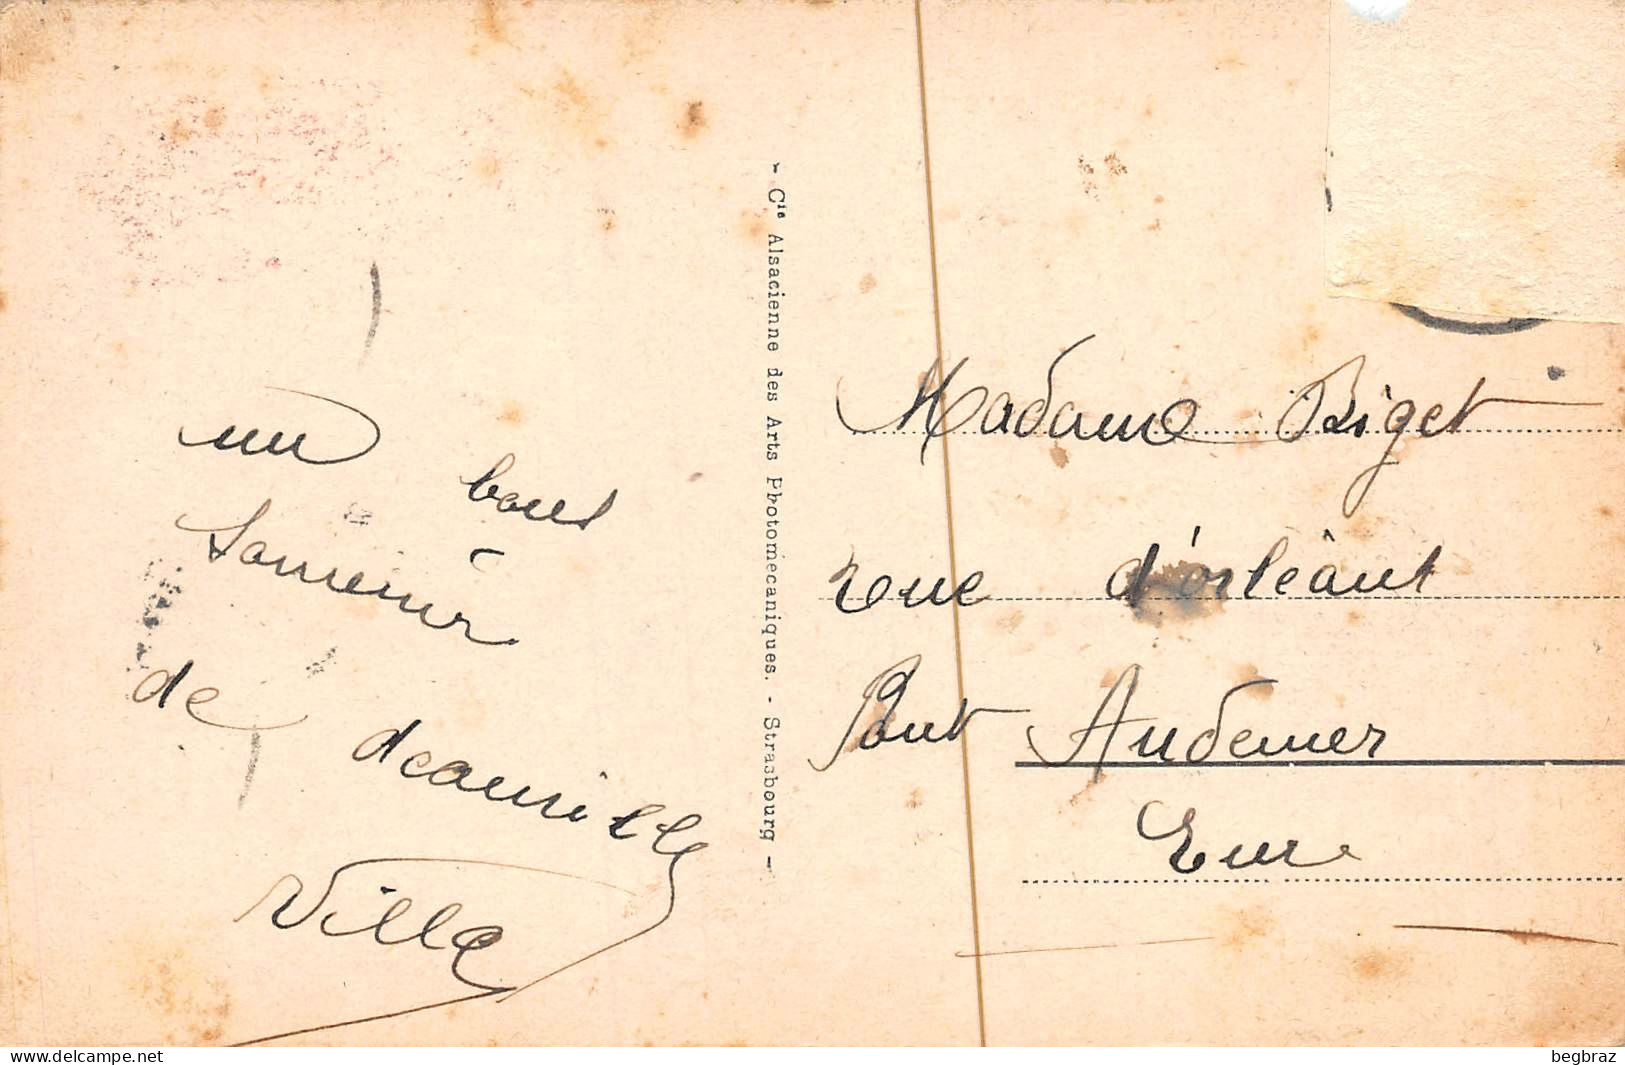 un bont
Souvenir
de deauville
Ville
- Cie Alsacienne des Arts Photomécaniques. - Strasbourg -
Madame Biget
rue d'orléant
Pont Audemer
Eure
delcampe.net
begbraz